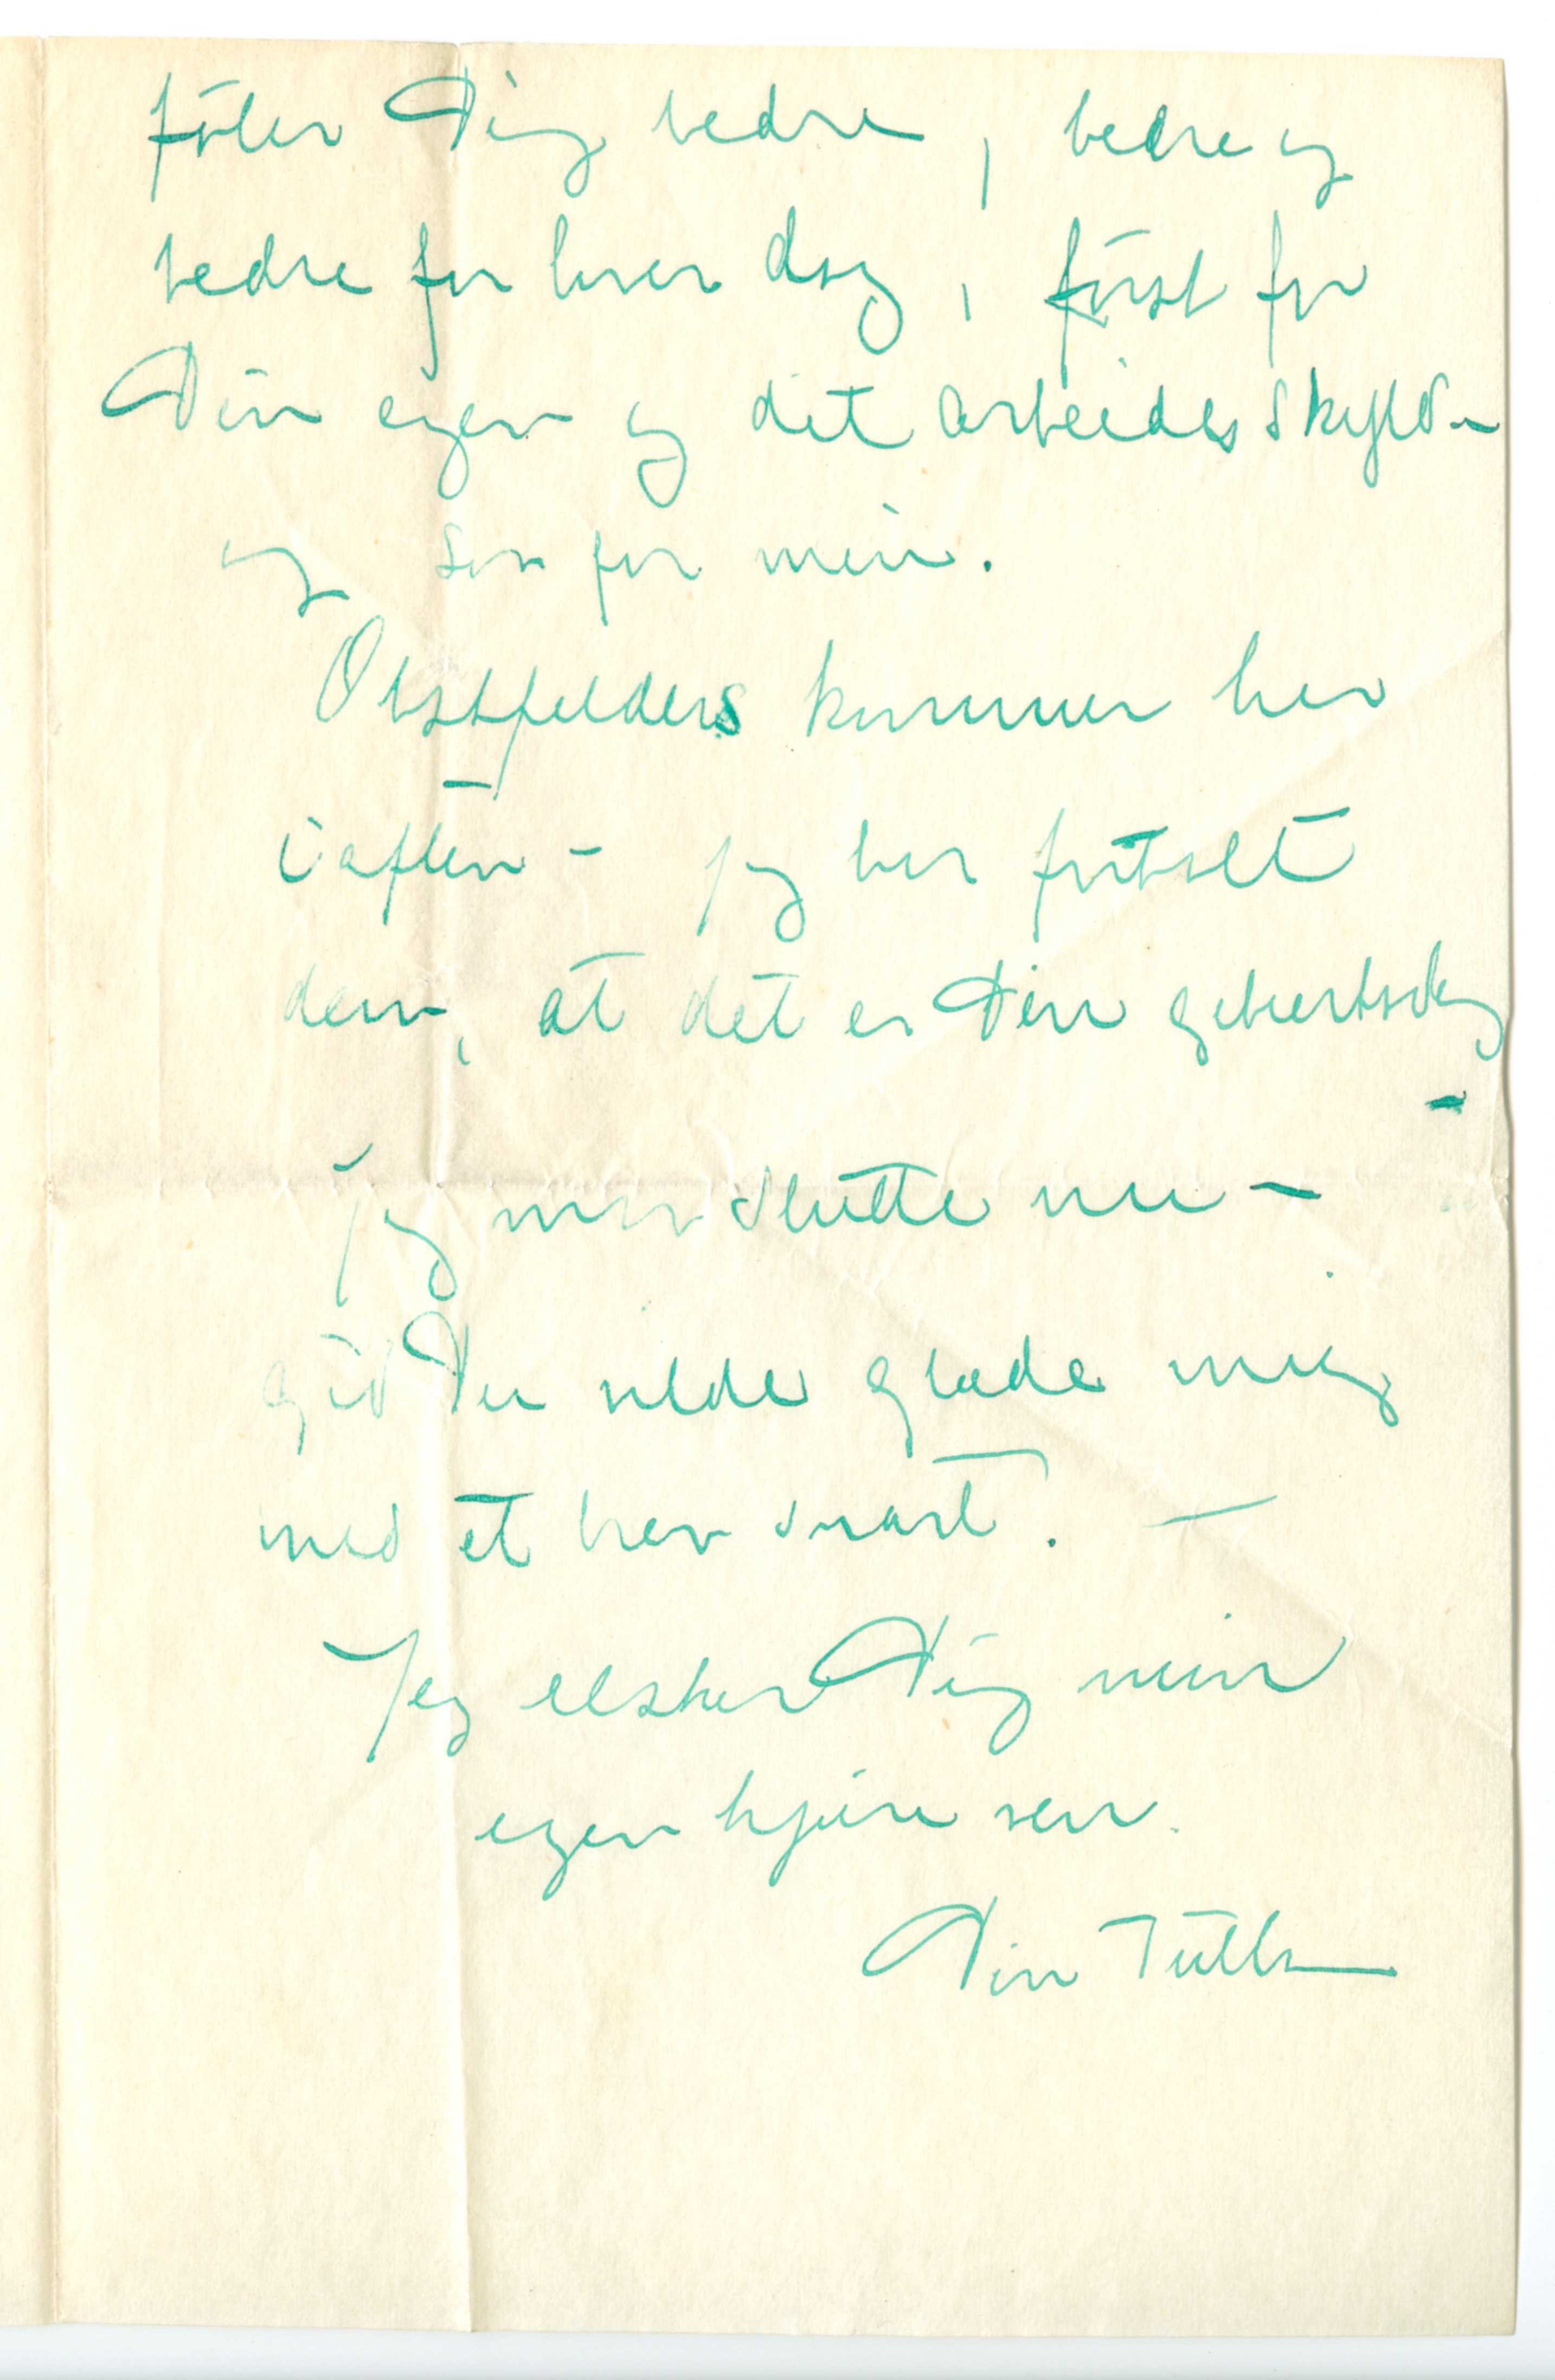 föler Dig bedre, bedre og
bedre for hver dag, först for
Din egen og dit arbeides skyld –
og son for min.
Obstfelders kommer her
iaften – jeg har fortalt
dem, at det er Din geburtsdag
–
jeg maa slutte nu –
gid Du vilde glæde mig
med et brev snart. –
Jeg elsker Dig min
egen kjære ven.
Din Tulla